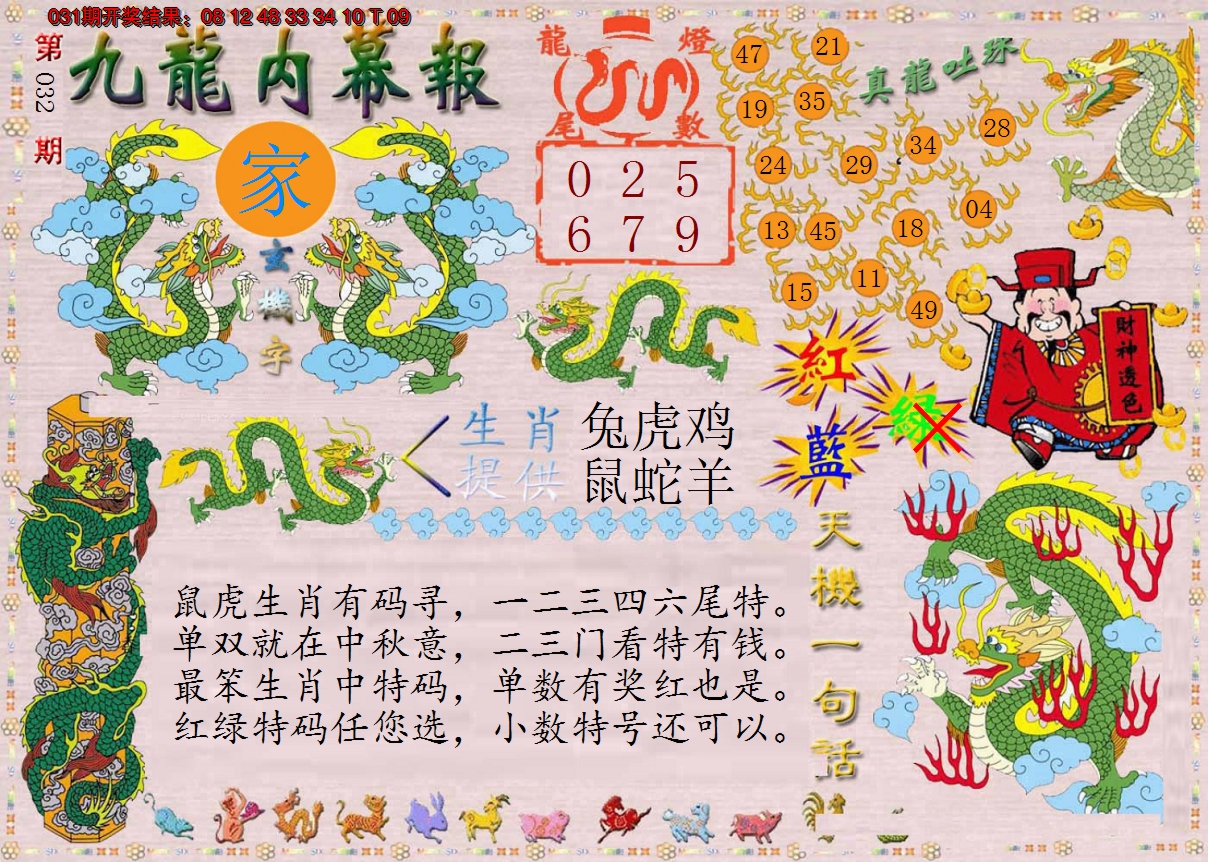 031期开奖结果：08 12 48 33 34 10 T 09
第032期
九龍内幕報
家
玄機字
龍燈
尾數
0 2 5
6 7 9
真龍吐珠
47 21
19 35
24 29 34 28
13 45 18 04
15 11 49
紅
綠
藍
財神透色
生肖 兔虎鸡
提供 鼠蛇羊
天機一句话
鼠虎生肖有码寻，一二三四六尾特。
单双就在中秋意，二三门看特有钱。
最笨生肖中特码，单数有奖红也是。
红绿特码任您选，小数特号还可以。